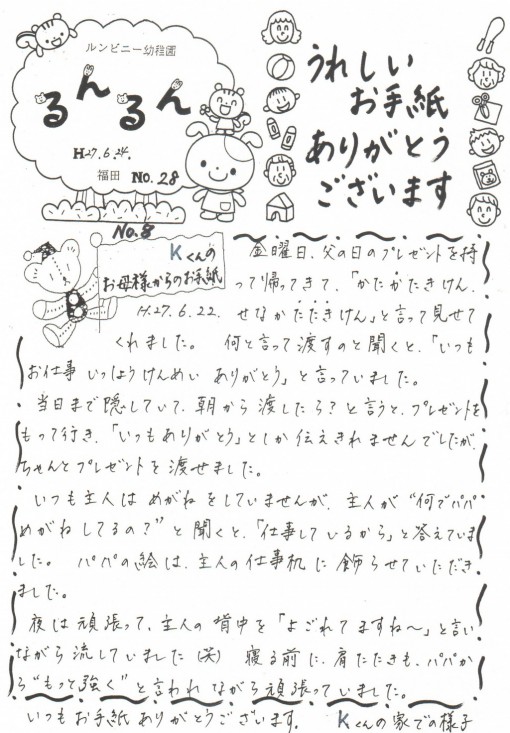 ルンビニー幼稚園
るんるん
H27.6.24.
福田 No.28
うれしい
お手紙
ありがとう
ございます
No.8
Kくんの
お母様からのお手紙
H.27.6.22.
金曜日、父の日のプレゼントを持
って帰ってきて、「かたがたきけん、
せなかたたきけん」と言って見せて
くれました。 何と言って渡すのと聞くと、「いつも
お仕事 いっしょうけんめい ありがとう」と言っていました。
当日まで隠していて、朝から渡したら？と言うと、プレゼントを
もって行き、「いつもありがとう」としか伝えきれませんでしたが、
ちゃんとプレゼントを渡せました。
いつも主人は めがねをしていませんが、主人が“何でパパ
めがねしてるの？”と聞くと、「仕事しているから」と答えていま
した。 パパの絵は、主人の仕事机に飾らせていただき
ました。
夜は頑張って、主人の背中を「よごれてますね〜」と言い
ながら流していました(笑) 寝る前に、肩たたきも、パパか
ら“もっと強く”と言われながら頑張っていました。
いつもお手紙ありがとうございます。 Kくんの家での様子